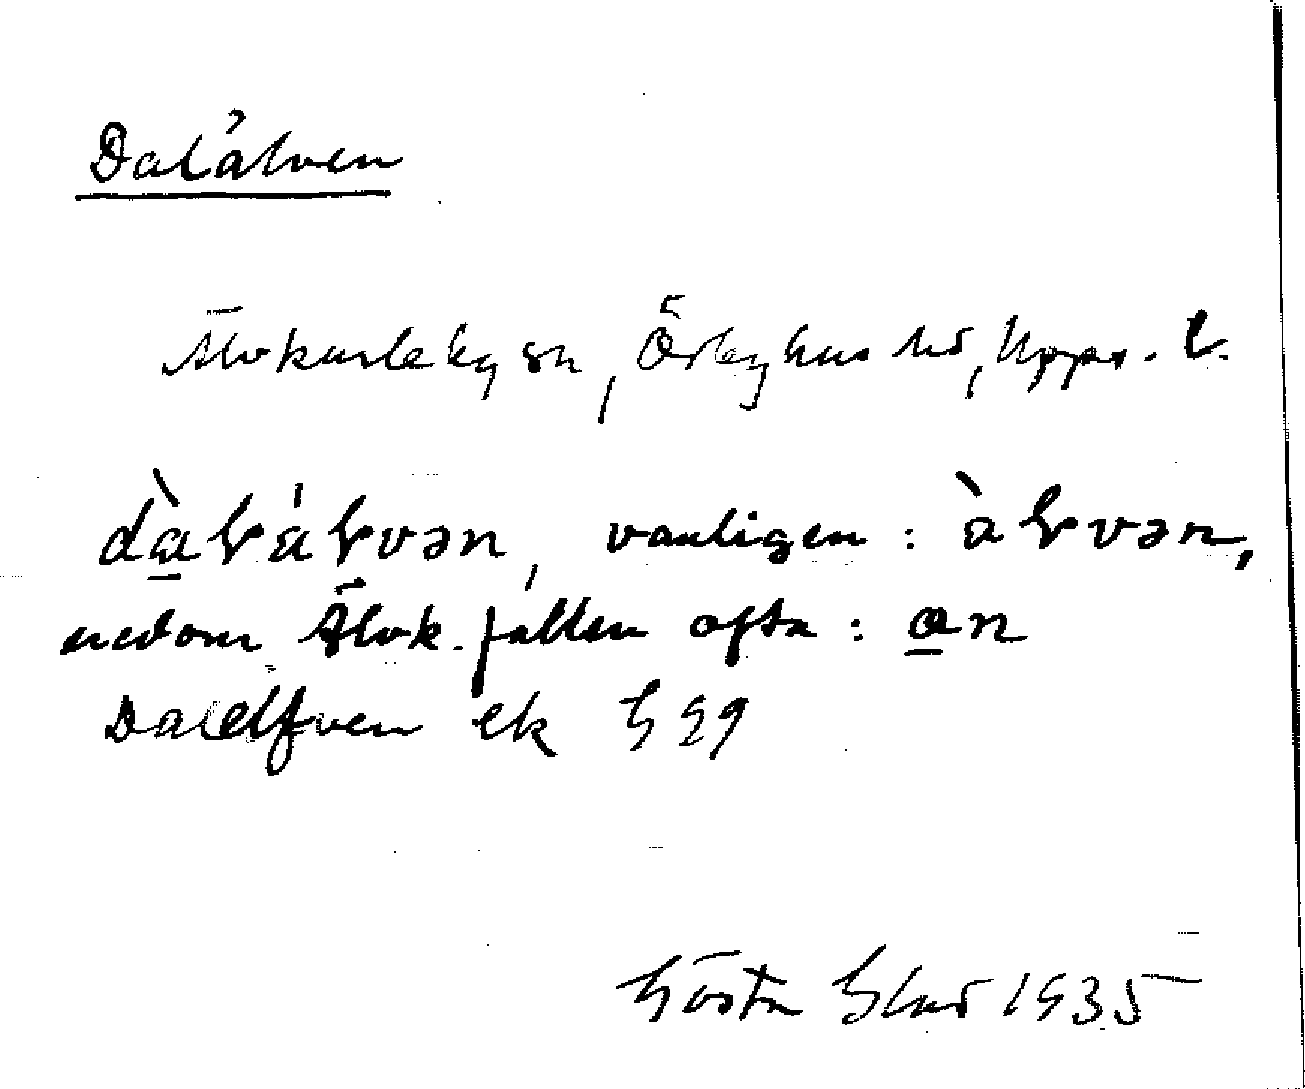 Dalälven
Älvkarleby sn, Örbyhus hd, Upps. l.
dàlálvən, vanligen: àlvən,
nedom Älvk. fallen ofta: an
Dalelfven ek G 99
Gösta Blad 1935